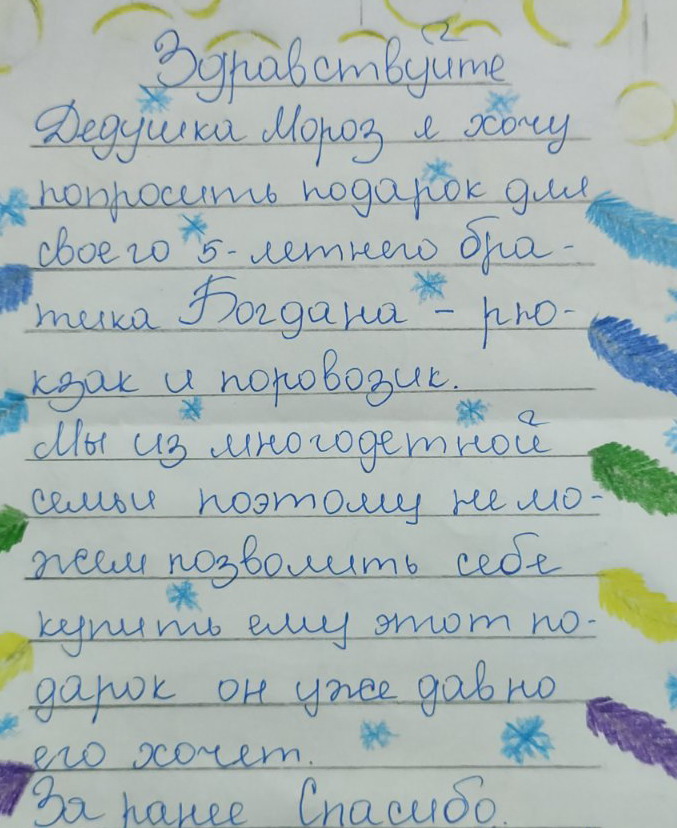 Здравствуйте
Дедушка Мороз я хочу
попросить подарок для
своего 5-летнего бра-
тика Богдана - рю-
кзак и поровозик.
Мы из многодетной
семьи поэтому не мо-
жем позволить себе
купить ему этот по-
дарок он уже давно
его хочет.
За ранее Спасибо.